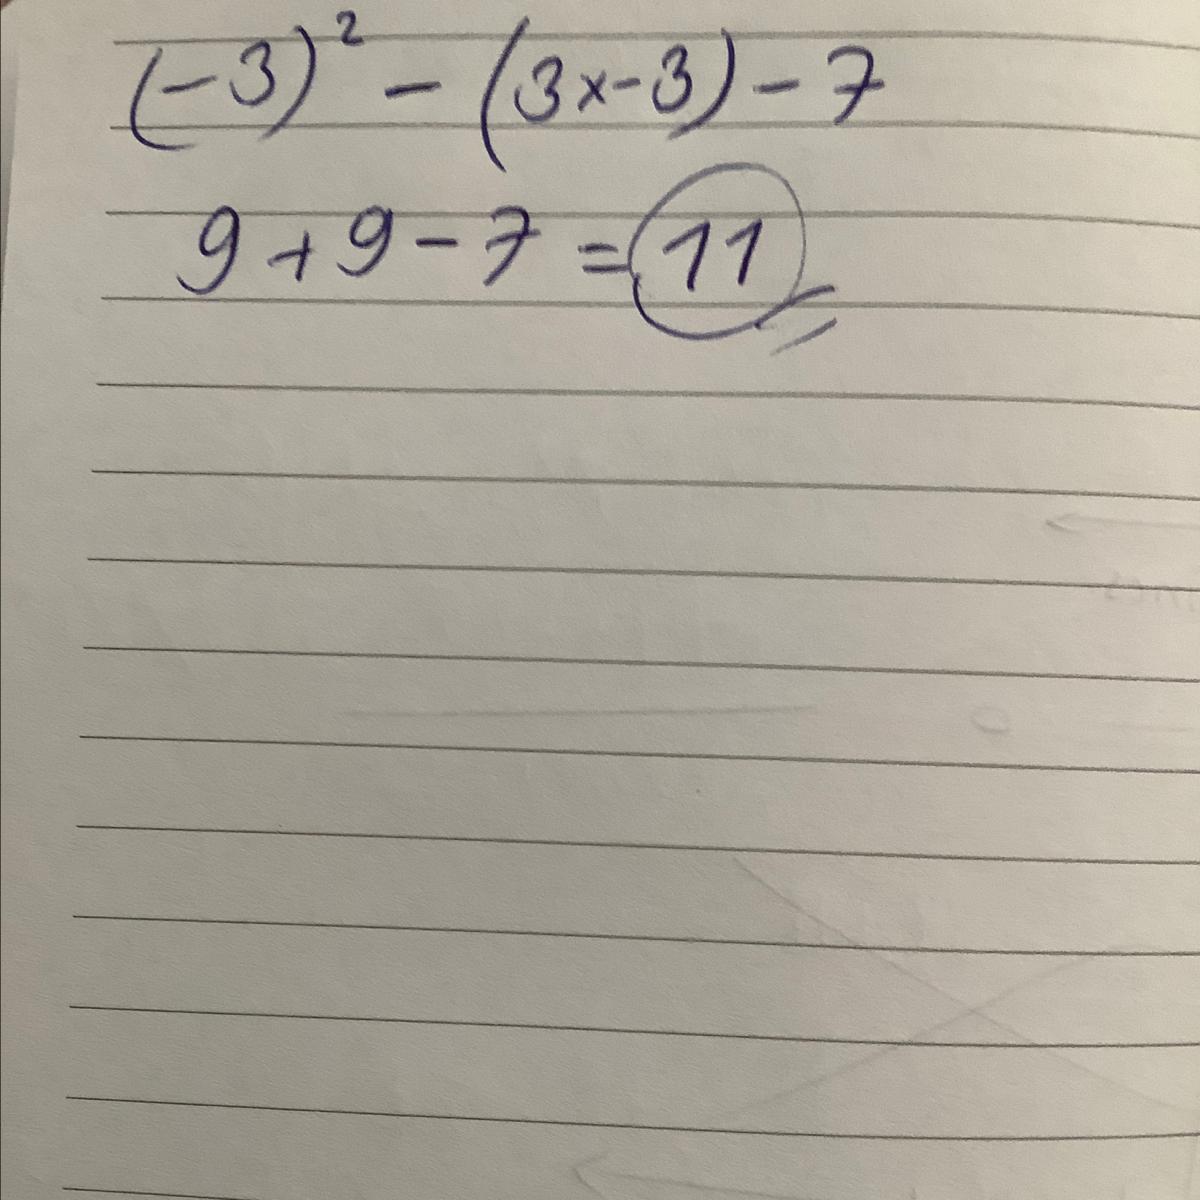 (-3)² - (3x-3) - 7
9 + 9 - 7 = 11